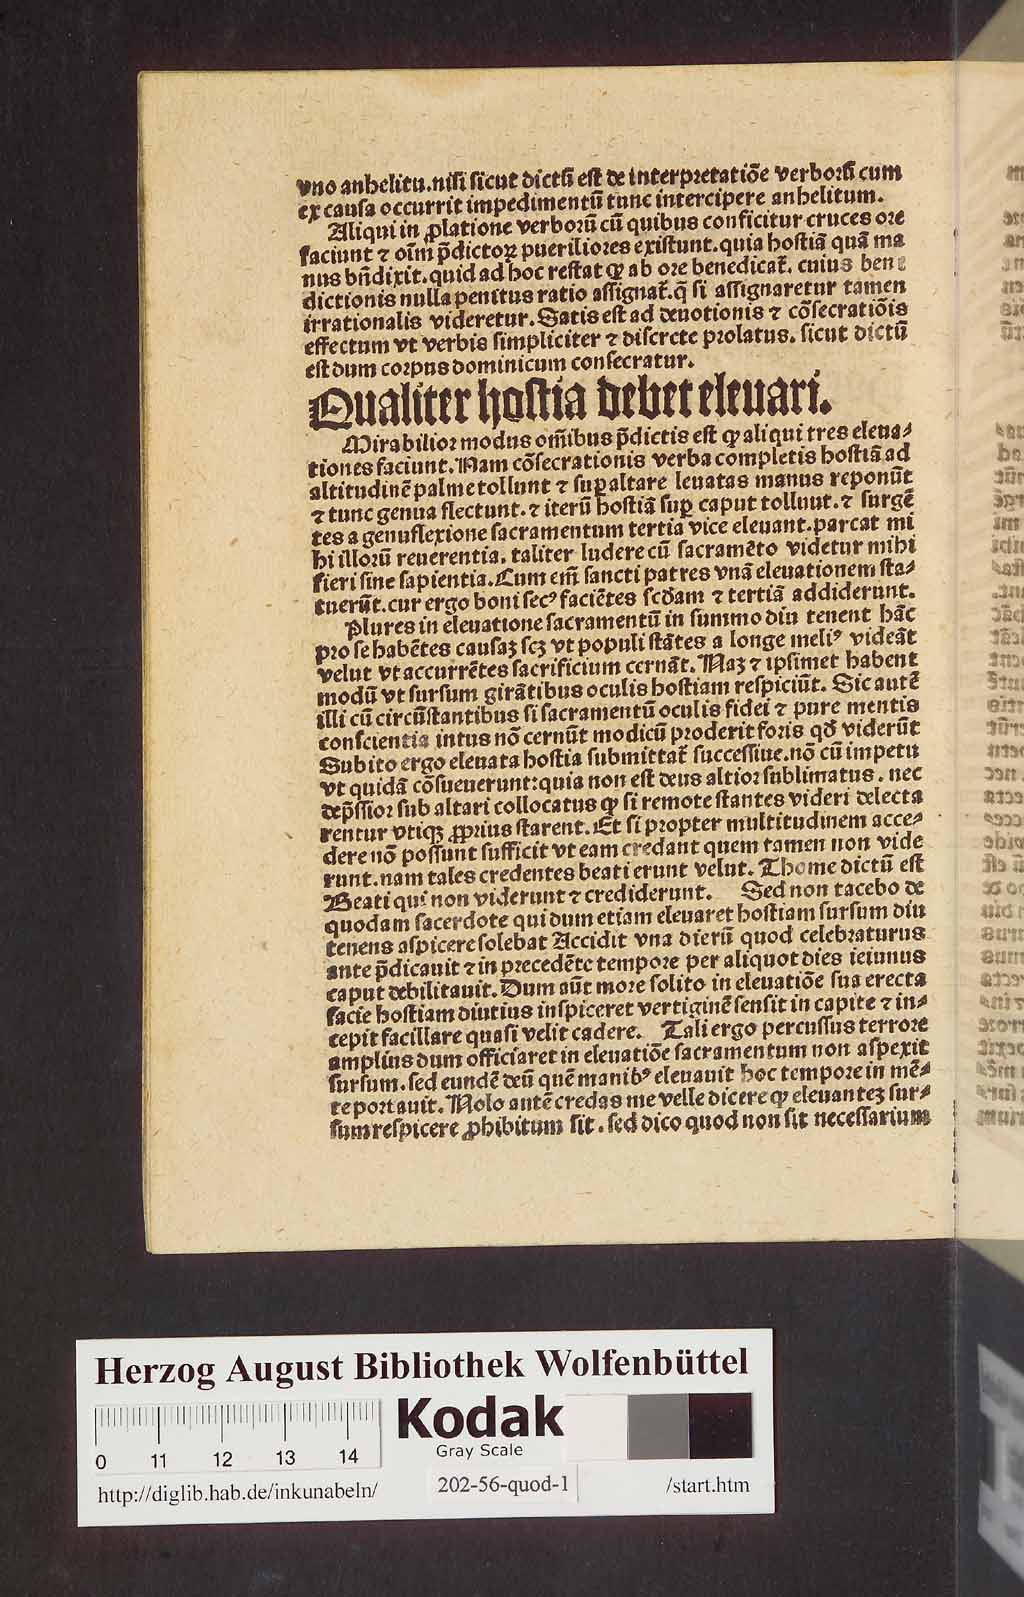 vno anhelitu. nisi sicut dictũ est de interpretatiõe verborũ cum
ex causa occurrit impedimentũ tunc intercipere anhelitum.
Aliqui in ꝓlatione verborũ cũ quibus conficitur cruces ore
faciunt ⁊ oĩm p̃dictoꝝ pueriliores existunt. quia hostiã quã ma
nus bñdixit. quid ad hoc restat ꝙ ab ore benedicat̃. cuius bene
dictionis nulla penitus ratio assignat̃. q̃ si assignaretur tamen
irrationalis videretur. Satis est ad deuotionis ⁊ cõsecratiõis
effectum vt verbis simpliciter ⁊ discrete prolatus. sicut dictũ
est dum corpus dominicum consecratur.
Qualiter hostia debet eleuari.
Mirabilior modus om̃ibus p̃dictis est ꝙ aliqui tres eleua⸗
tiones faciunt. Nam cõsecrationis verba completis hostiã ad
altitudinẽ palme tollunt ⁊ suꝑ altare leuatas manus reponũt
⁊ tunc genua flectunt. ⁊ iterũ hostiã suꝑ caput tollunt. ⁊ surgẽ
tes a genuflexione sacramentum tertia vice eleuant. parcat mi
hi illorũ reuerentia. taliter ludere cũ sacramẽto videtur mihi
fieri sine sapientia. Cum em̃ sancti patres vnã eleuationem sta⸗
tuerũt. cur ergo boni secꝰ faciẽtes scd̃am ⁊ tertiã addiderunt.
Plures in eleuatione sacramentũ in summo diu tenent hãc
pro se habẽtes causaꝫ scꝫ vt populi stãtes a longe meliꝰ videãt
velut vt accurrẽtes sacrificium cernãt. Naꝫ ⁊ ipsimet habent
modũ vt sursum girãtibus oculis hostiam respiciũt. Sic autẽ
illi cũ circũstantibus si sacramentũ oculis fidei ⁊ pure mentis
conscientia intus nõ cernũt modicũ proderit foris qð viderũt
Subito ergo eleuata hostia submittat̃ successiue. nõ cũ impetu
vt quidã cõsueuerunt: quia non est deus altior sublimatus. nec
dep̃ssior sub altari collocatus ꝙ si remote stantes videri delecta
rentur vtiqꝫ ꝓprius starent. Et si propter multitudinem acce⸗
dere nõ possunt sufficit vt eam credant quem tamen non vide
runt. nam tales credentes beati erunt velut. Thome dictũ est
Beati qui non viderunt ⁊ crediderunt. Sed non tacebo de
quodam sacerdote qui dum etiam eleuaret hostiam sursum diu
tenens aspicere solebat Accidit vna dierũ quod celebraturus
ante p̃dicauit ⁊ in precedẽte tempore per aliquot dies ieiunus
caput debilitauit. Dum aũt more solito in eleuatiõe sua erecta
facie hostiam diutius inspiceret vertiginẽ sensit in capite ⁊ in⸗
cepit facillare quasi velit cadere. Tali ergo percussus terrore
amplius dum officiaret in eleuatiõe sacramentum non aspexit
sursum. sed eundẽ deũ quẽ manibꝰ eleuauit hoc tempore in mẽ⸗
te portauit. Nolo antẽ credas me velle dicere ꝙ eleuanteꝫ sur⸗
sum respicere ꝓhibitum sit. sed dico quod non sit necessarium
Herzog August Bibliothek Wolfenbüttel
Kodak
Gray Scale
0 11 12 13 14
http://diglib.hab.de/inkunabeln/ 202-56-quod-1 /start.htm